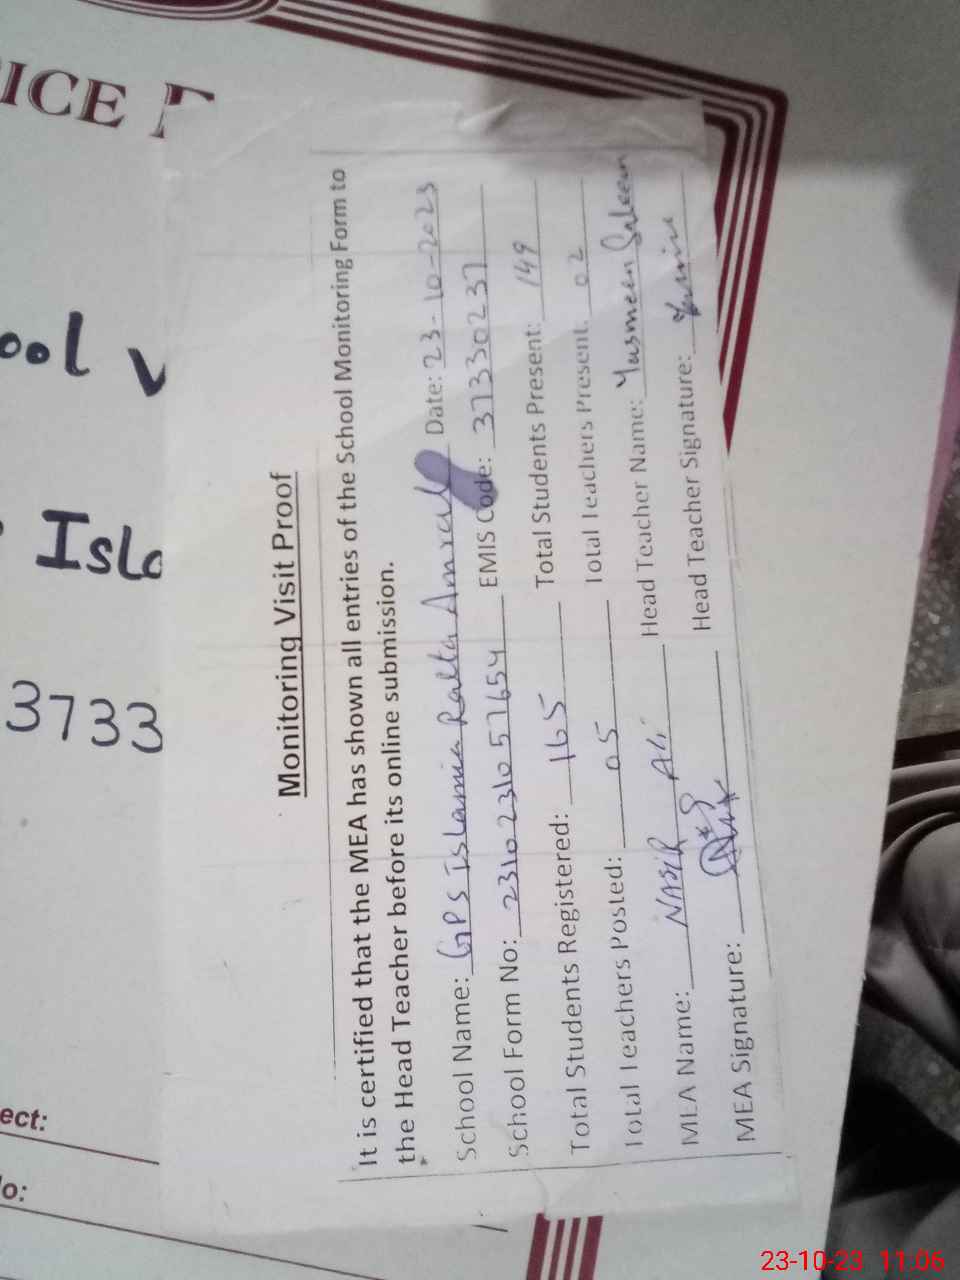 ICE
ool
Isla
3733
ect:
lo:
Monitoring Visit Proof
It is certified that the MEA has shown all entries of the School Monitoring Form to
the Head Teacher before its online submission.
School Name: GPS islamia Ralta Amral Date: 23-10-2023
School Form No: 2310231057654 EMIS Code: 37330237
Total Students Registered: 165 Total Students Present: 149
Total Teachers Posted: 05 Total Teachers Present: 02
MEA Name: NASIR Ali Head Teacher Name: Yasmeen Saleem
MEA Signature: Head Teacher Signature:
23-10-23 11:06